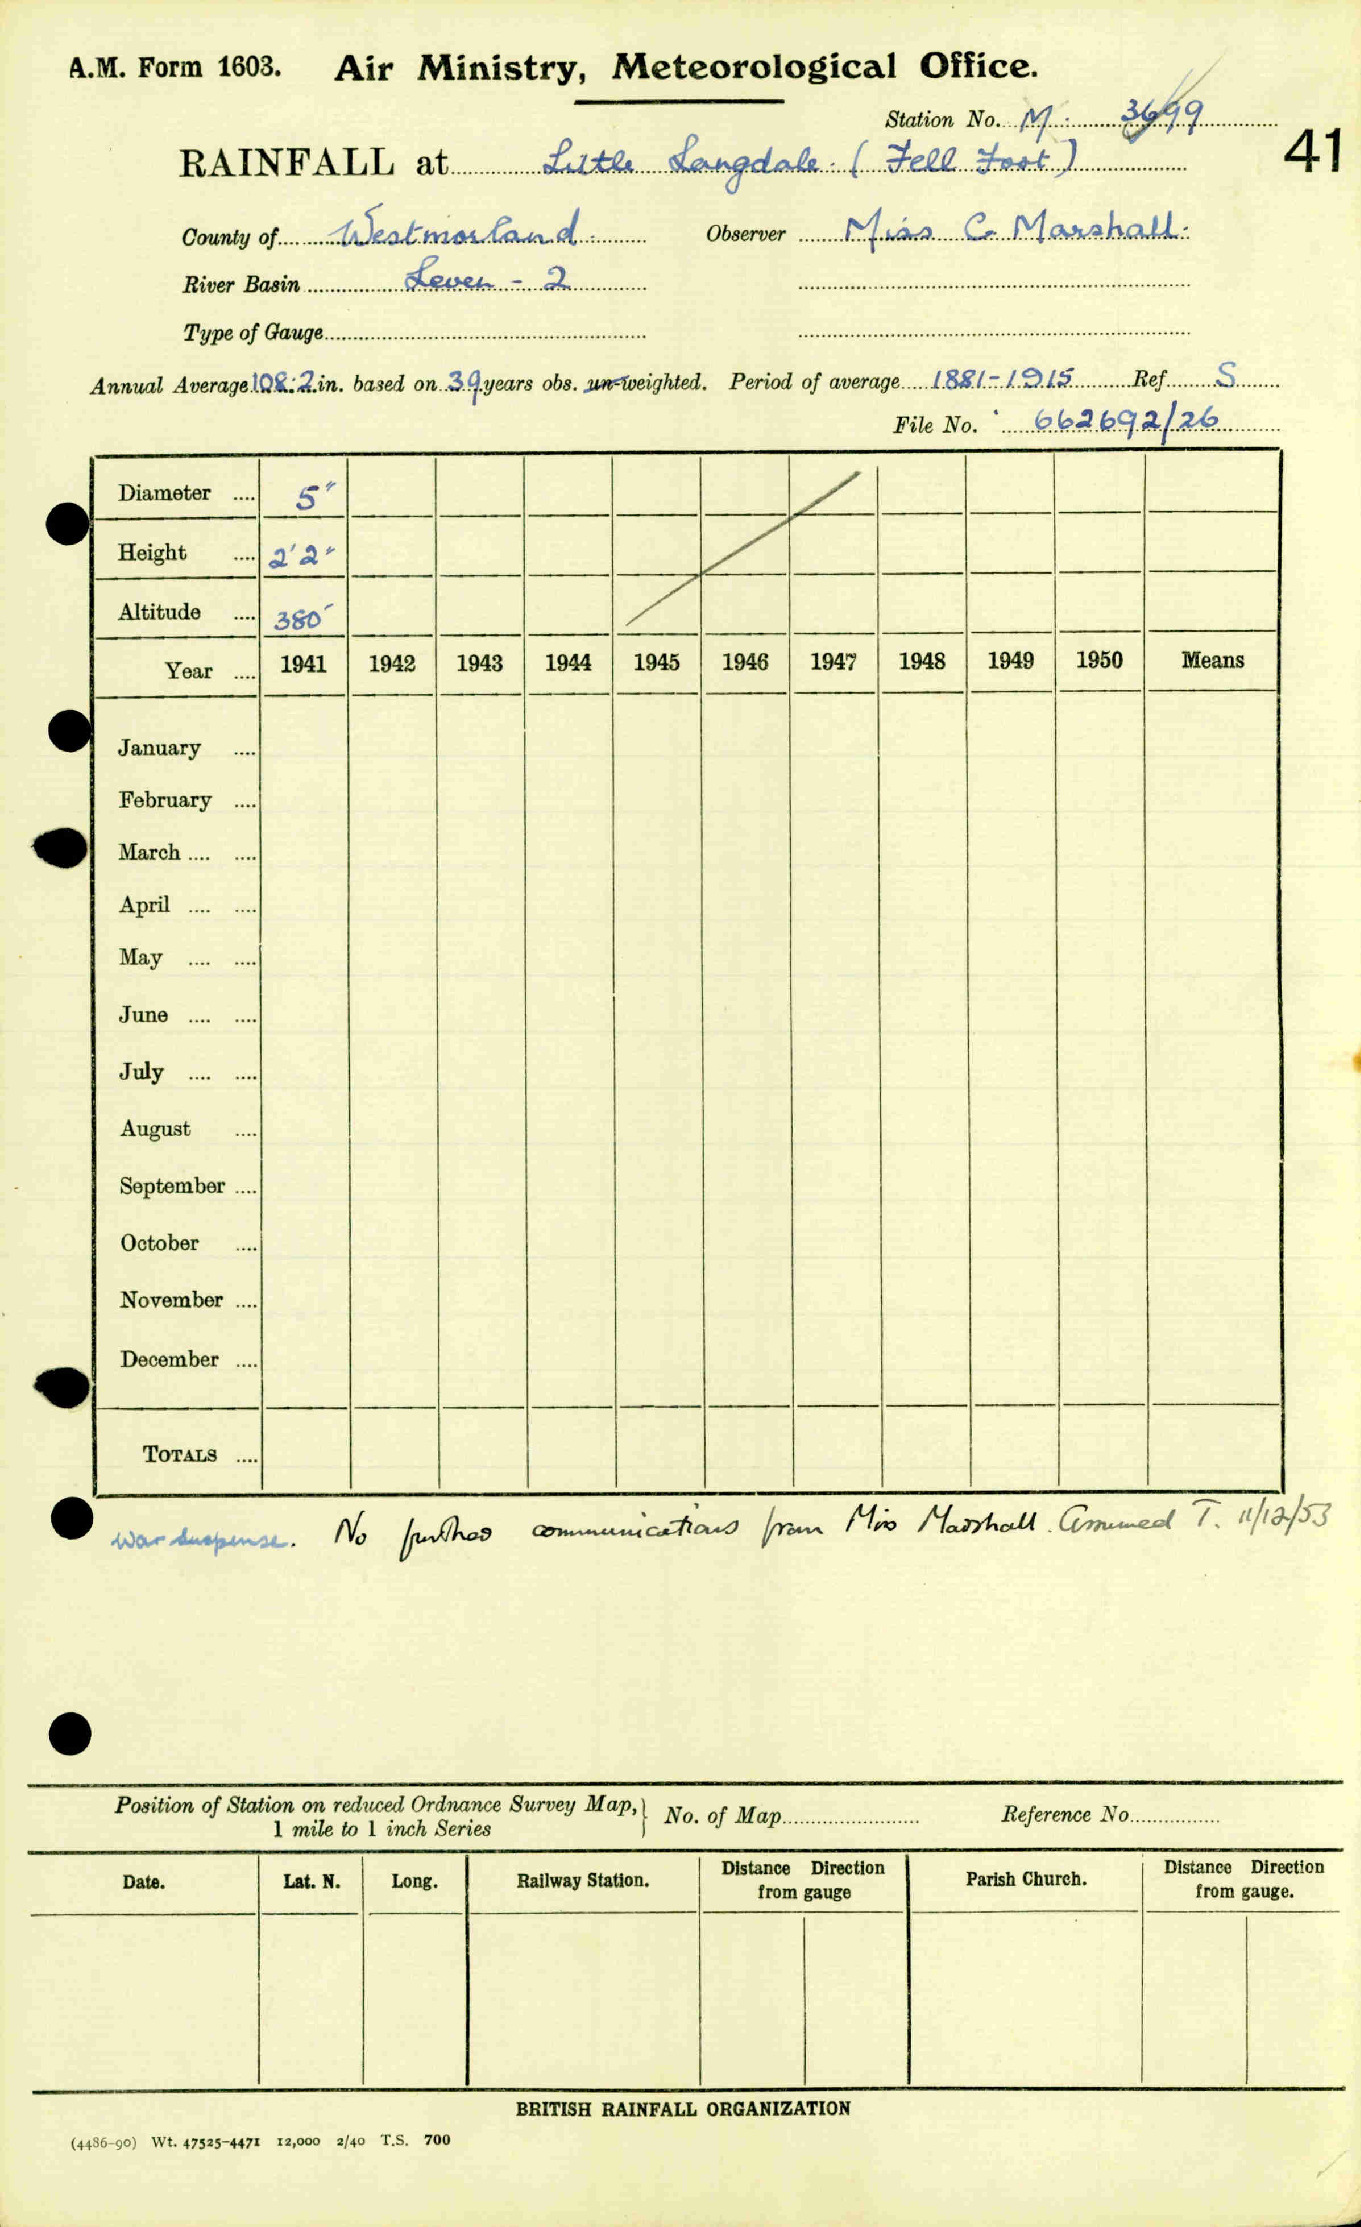 A.M. Form 1603. Air Ministry, Meteorological Office.
Station No. M. 3699
41
RAINFALL at Little Langdale. (Fell Foot)
County of Westmorland. Observer Miss C. Marshall.
River Basin Leven - 2
Type of Gauge
Annual Average 108.2 in. based on 39 years obs. un-weighted. Period of average 1881-1915 Ref. S
File No. 662692/26
Diameter .... 5"
Height .... 2'2"
Altitude .... 380'
Year .... 1941 1942 1943 1944 1945 1946 1947 1948 1949 1950 Means
January ....
February ....
March .... ....
April .... ....
May .... ....
June .... ....
July .... ....
August ....
September ....
October ....
November ....
December ....
TOTALS ....
War suspense. No further communications from Miss Marshall. Assumed T. 11/12/53
Position of Station on reduced Ordnance Survey Map, } No. of Map Reference No.
1 mile to 1 inch Series
Date. Lat. N. Long. Railway Station. Distance Direction from gauge Parish Church. Distance Direction from gauge.
BRITISH RAINFALL ORGANIZATION
(4486-90) Wt. 47525-4471 12,000 2/40 T.S. 700